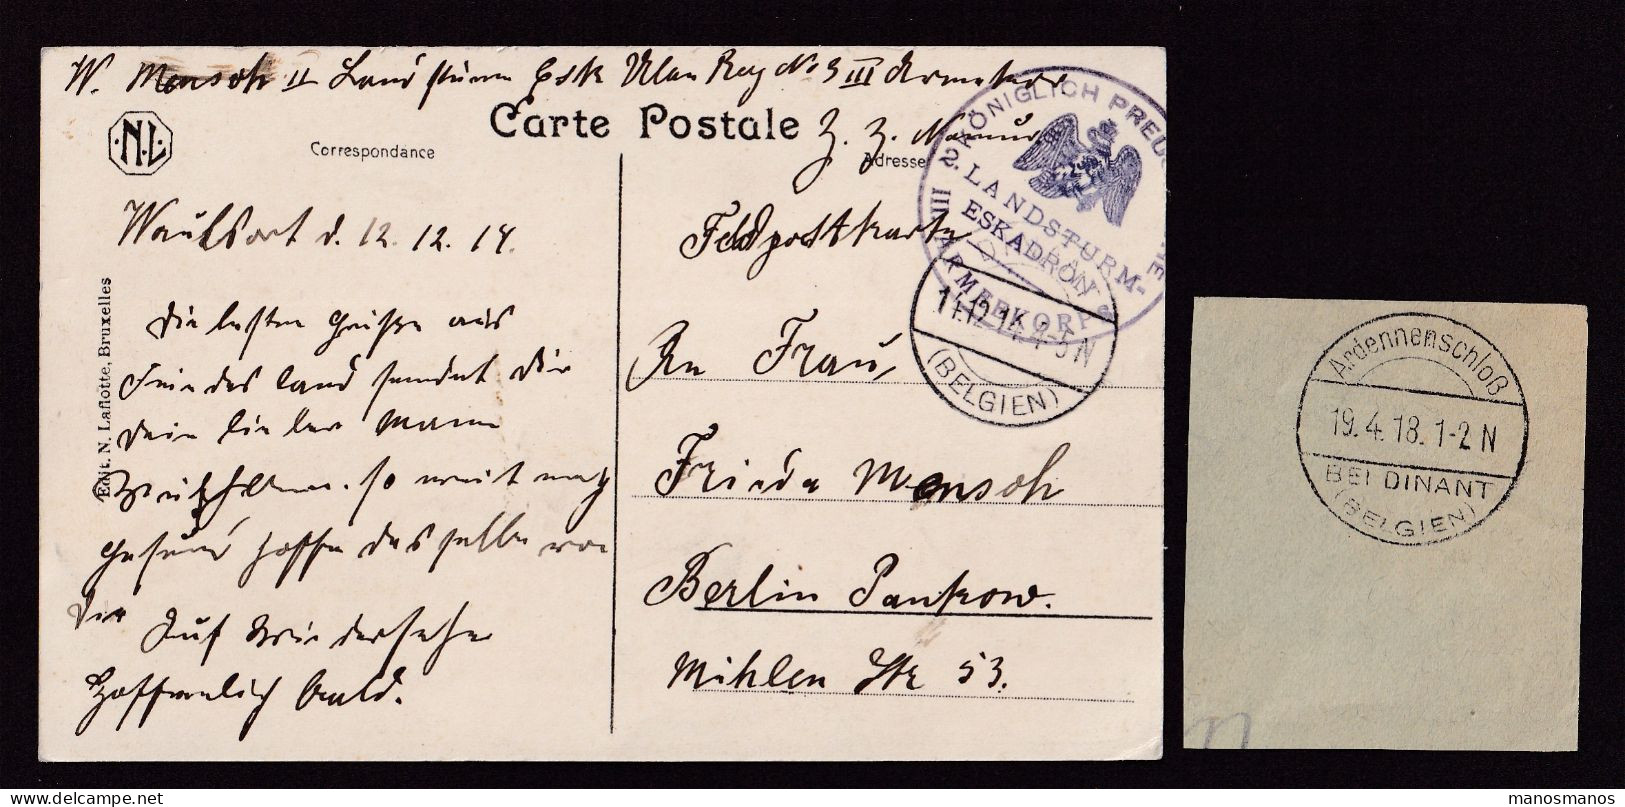 W. Mensch II Landsturm Esk Ulan Reg No 3 III Armekor
Z. Z. Namur
N.L.
Carte Postale
Correspondance
Adresse
KÖNIGLICH PREUS
2. LANDSTURM-
ESKADRON
III ARMEEKORPS
Waulsort d. 12. 12. 14.
Feldpostkarte
Die besten Grüße aus
Feindes land sendet Dir
Dein lieber Mann
gesund hoffe dasselbe von
Dir
Auf Wiedersehn
hoffentlich bald.
Edit. N. Laflotte, Bruxelles
An Frau,
Frieda Mensch
Berlin Pankow.
Mühlen Str 53.
14.12.14. 4-5 N
(BELGIEN)
Ardennenschloß
19. 4. 18. 1-2 N
BEI DINANT
(BELGIEN)
manosmanos